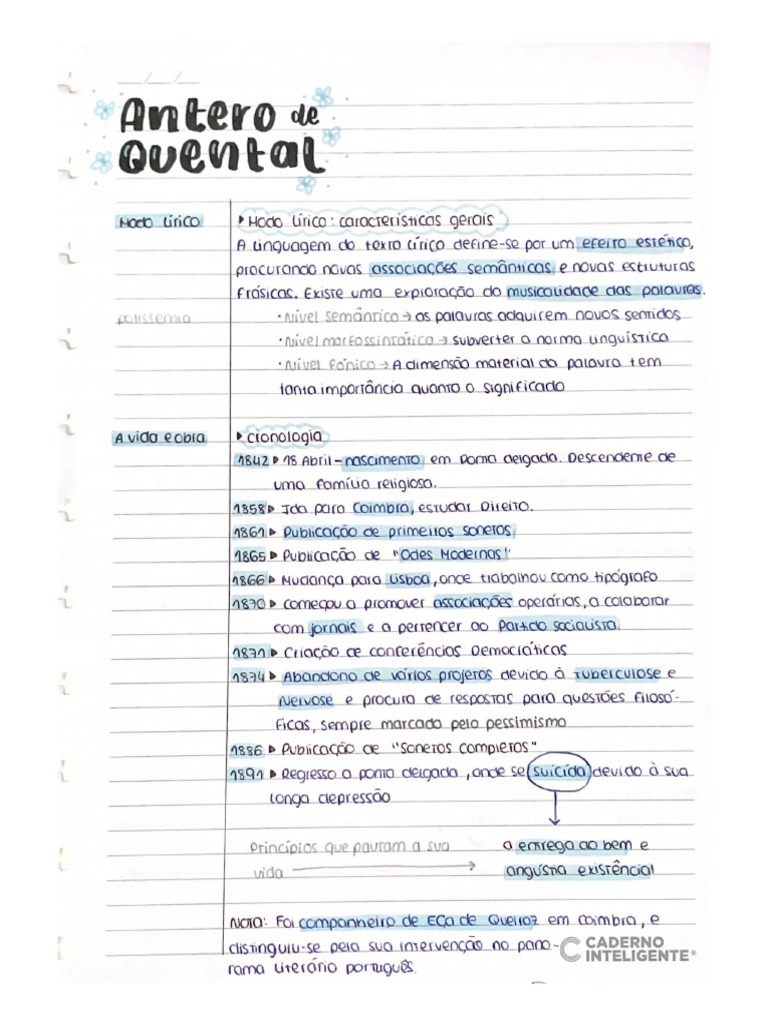 __/__/__
Antero de
Quental
Modo Lírico
▸ Modo Lírico: características gerais
A linguagem do texto lírico define-se por um efeito estético,
procurando novas associações semânticas e novas estruturas
frásicas. Existe uma exploração da musicalidade das palavras.
polissemia
· Nível semântico → as palavras adquirem novos sentidos
· Nível morfossintático → subverter a norma linguística
· Nível fónico → A dimensão material da palavra tem
tanta importância quanto o significado
A vida e obra
▸ Cronologia
1842 ▸ 18 Abril - nascimento em Ponta delgada. Descendente de
uma família religiosa.
1858 ▸ Ida para Coimbra, estudar Direito.
1861 ▸ Publicação de primeiros sonetos
1865 ▸ Publicação de "Odes Modernas"
1866 ▸ Mudança para Lisboa, onde trabalhou como tipógrafo
1870 ▸ começou a promover associações operárias, a colaborar
com jornais e a pertencer ao Partido socialista.
1871 ▸ Criação de conferências Democráticas
1874 ▸ Abandono de vários projetos devido à Tuberculose e
Nervose e procura de respostas para questões filosó-
ficas, sempre marcado pelo pessimismo
1886 ▸ Publicação de "Sonetos completos"
1891 ▸ Regresso a ponta delgada, onde se suicida devido à sua
longa depressão
Princípios que pautam a sua
vida →
a entrega ao bem e
angústia existêncial
NOTA: Foi companheiro de Eça de Queiroz em coimbra, e
distinguiu-se pela sua intervenção no pano-
rama literário português.
CADERNO
INTELIGENTE®